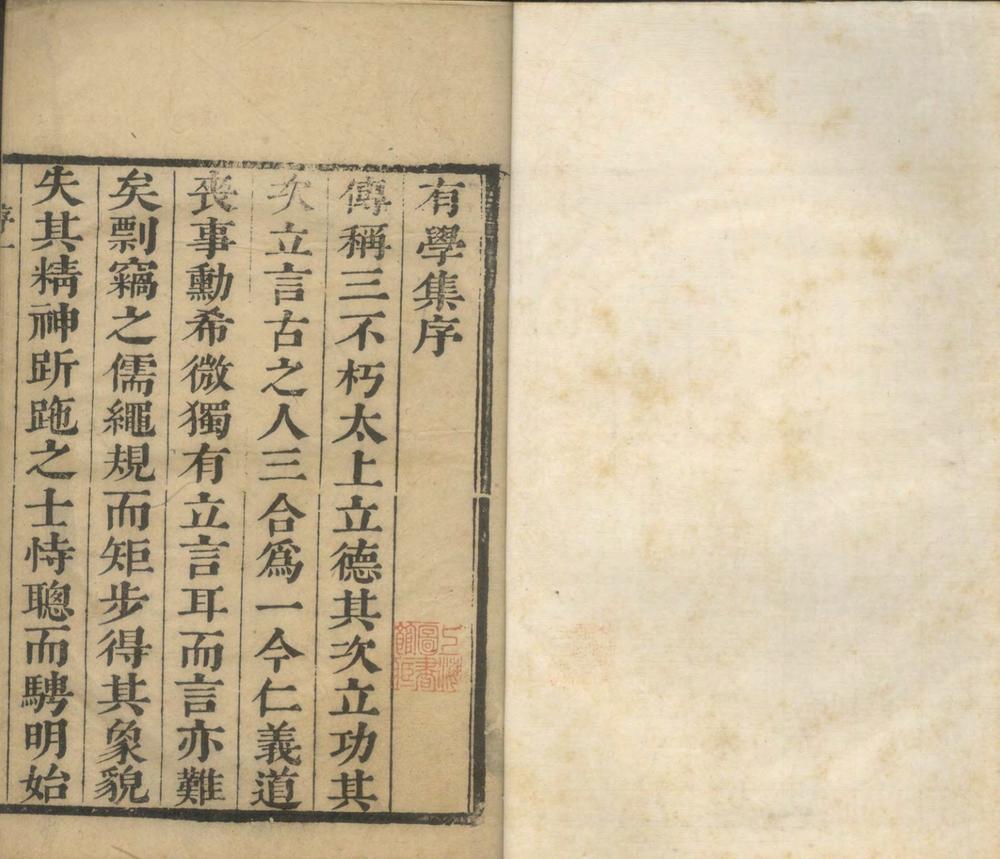 有學集序
傳稱三不朽太上立德其次立功其
次立言古之人三合爲一今仁義道
喪事勳希微獨有立言耳而言亦難
矣剽竊之儒繩規而矩步得其象貌
失其精神跅跑之士恃聰而騁明始
序一
上海圖書館藏